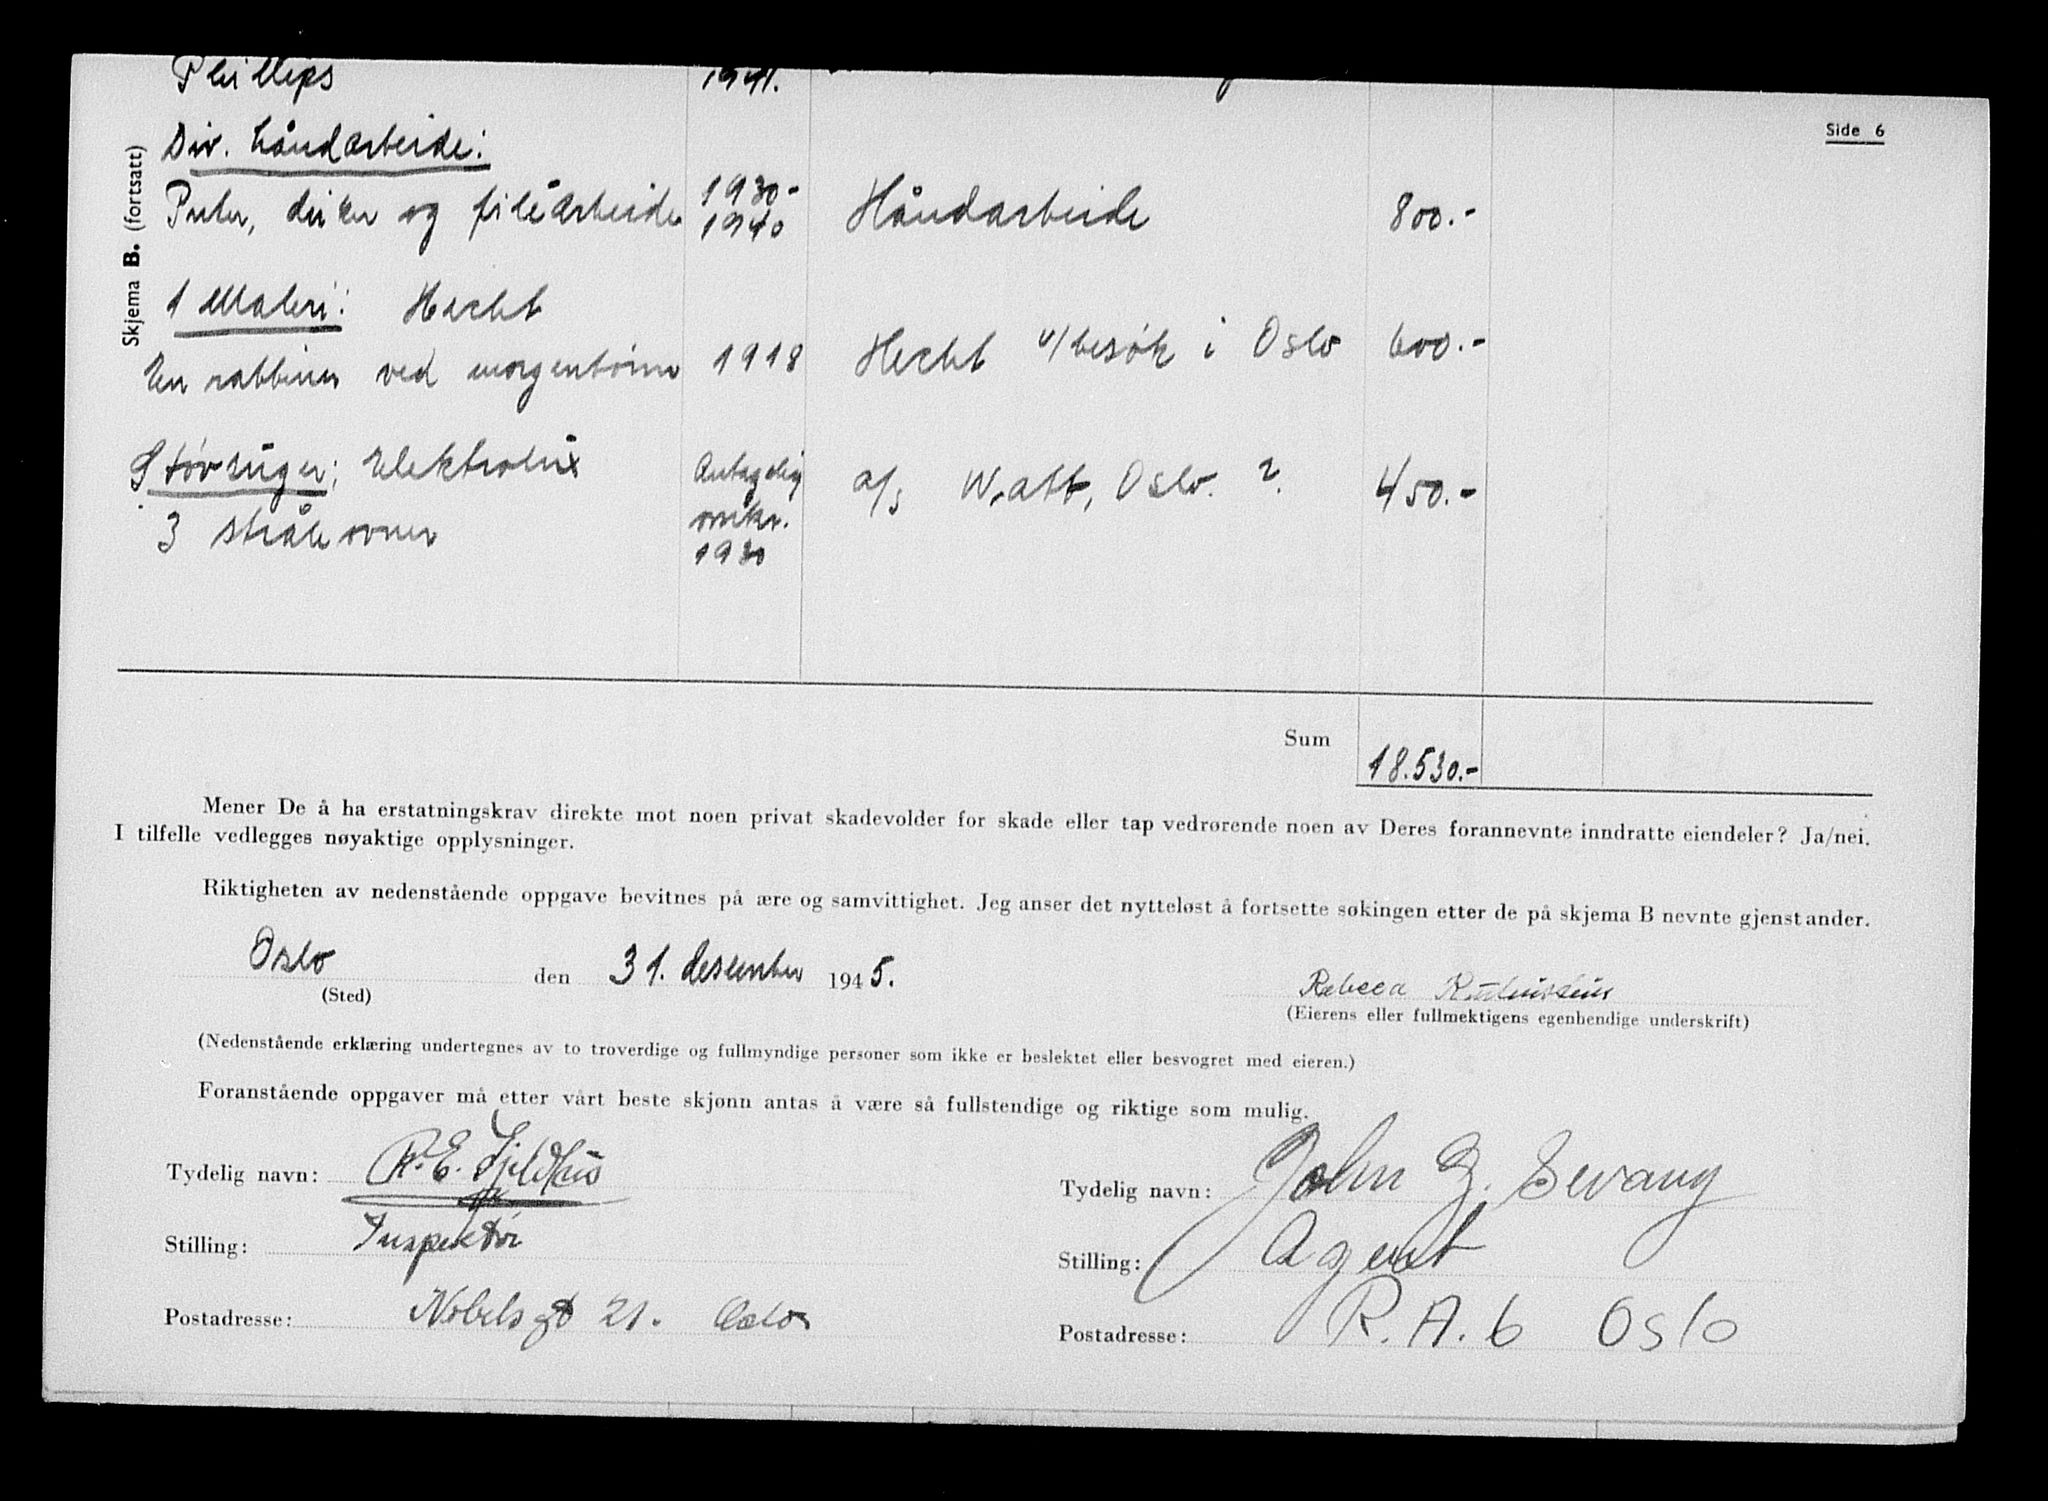 Phillips 1941.
Side 6
Skjema B. (fortsatt)
Div. håndarbeide:
Puter, duker og filéarbeider 1930-1940 Håndarbeide 800.-
1 Maleri: Hecht
En rabbiner ved morgenbønn 1918 Hecht v/besøk i Oslo 600.-
Støvsuger: Elektrolux Antagelig omkr. 1930 a/s Watt, Oslo. ? 450.-
3 stråleovner
Sum 18.530.-
Mener De å ha erstatningskrav direkte mot noen privat skadevolder for skade eller tap vedrørende noen av Deres forannevnte inndratte eiendeler? Ja/nei.
I tilfelle vedlegges nøyaktige opplysninger.
Riktigheten av nedenstående oppgave bevitnes på ære og samvittighet. Jeg anser det nytteløst å fortsette søkingen etter de på skjema B nevnte gjenstander.
Oslo den 31. desember 1945.
(Sted)
Rebecca Rubinstein
(Eierens eller fullmektigens egenhendige underskrift)
(Nedenstående erklæring undertegnes av to troverdige og fullmyndige personer som ikke er beslektet eller besvogret med eieren.)
Foranstående oppgaver må etter vårt beste skjønn antas å være så fullstendige og riktige som mulig.
Tydelig navn: R. E. Fjeldhus
Tydelig navn: John G. Sevang
Stilling: Inspektør
Stilling: Agent
Postadresse: Nobels gt 21. Oslo
Postadresse: R.A.6 Oslo